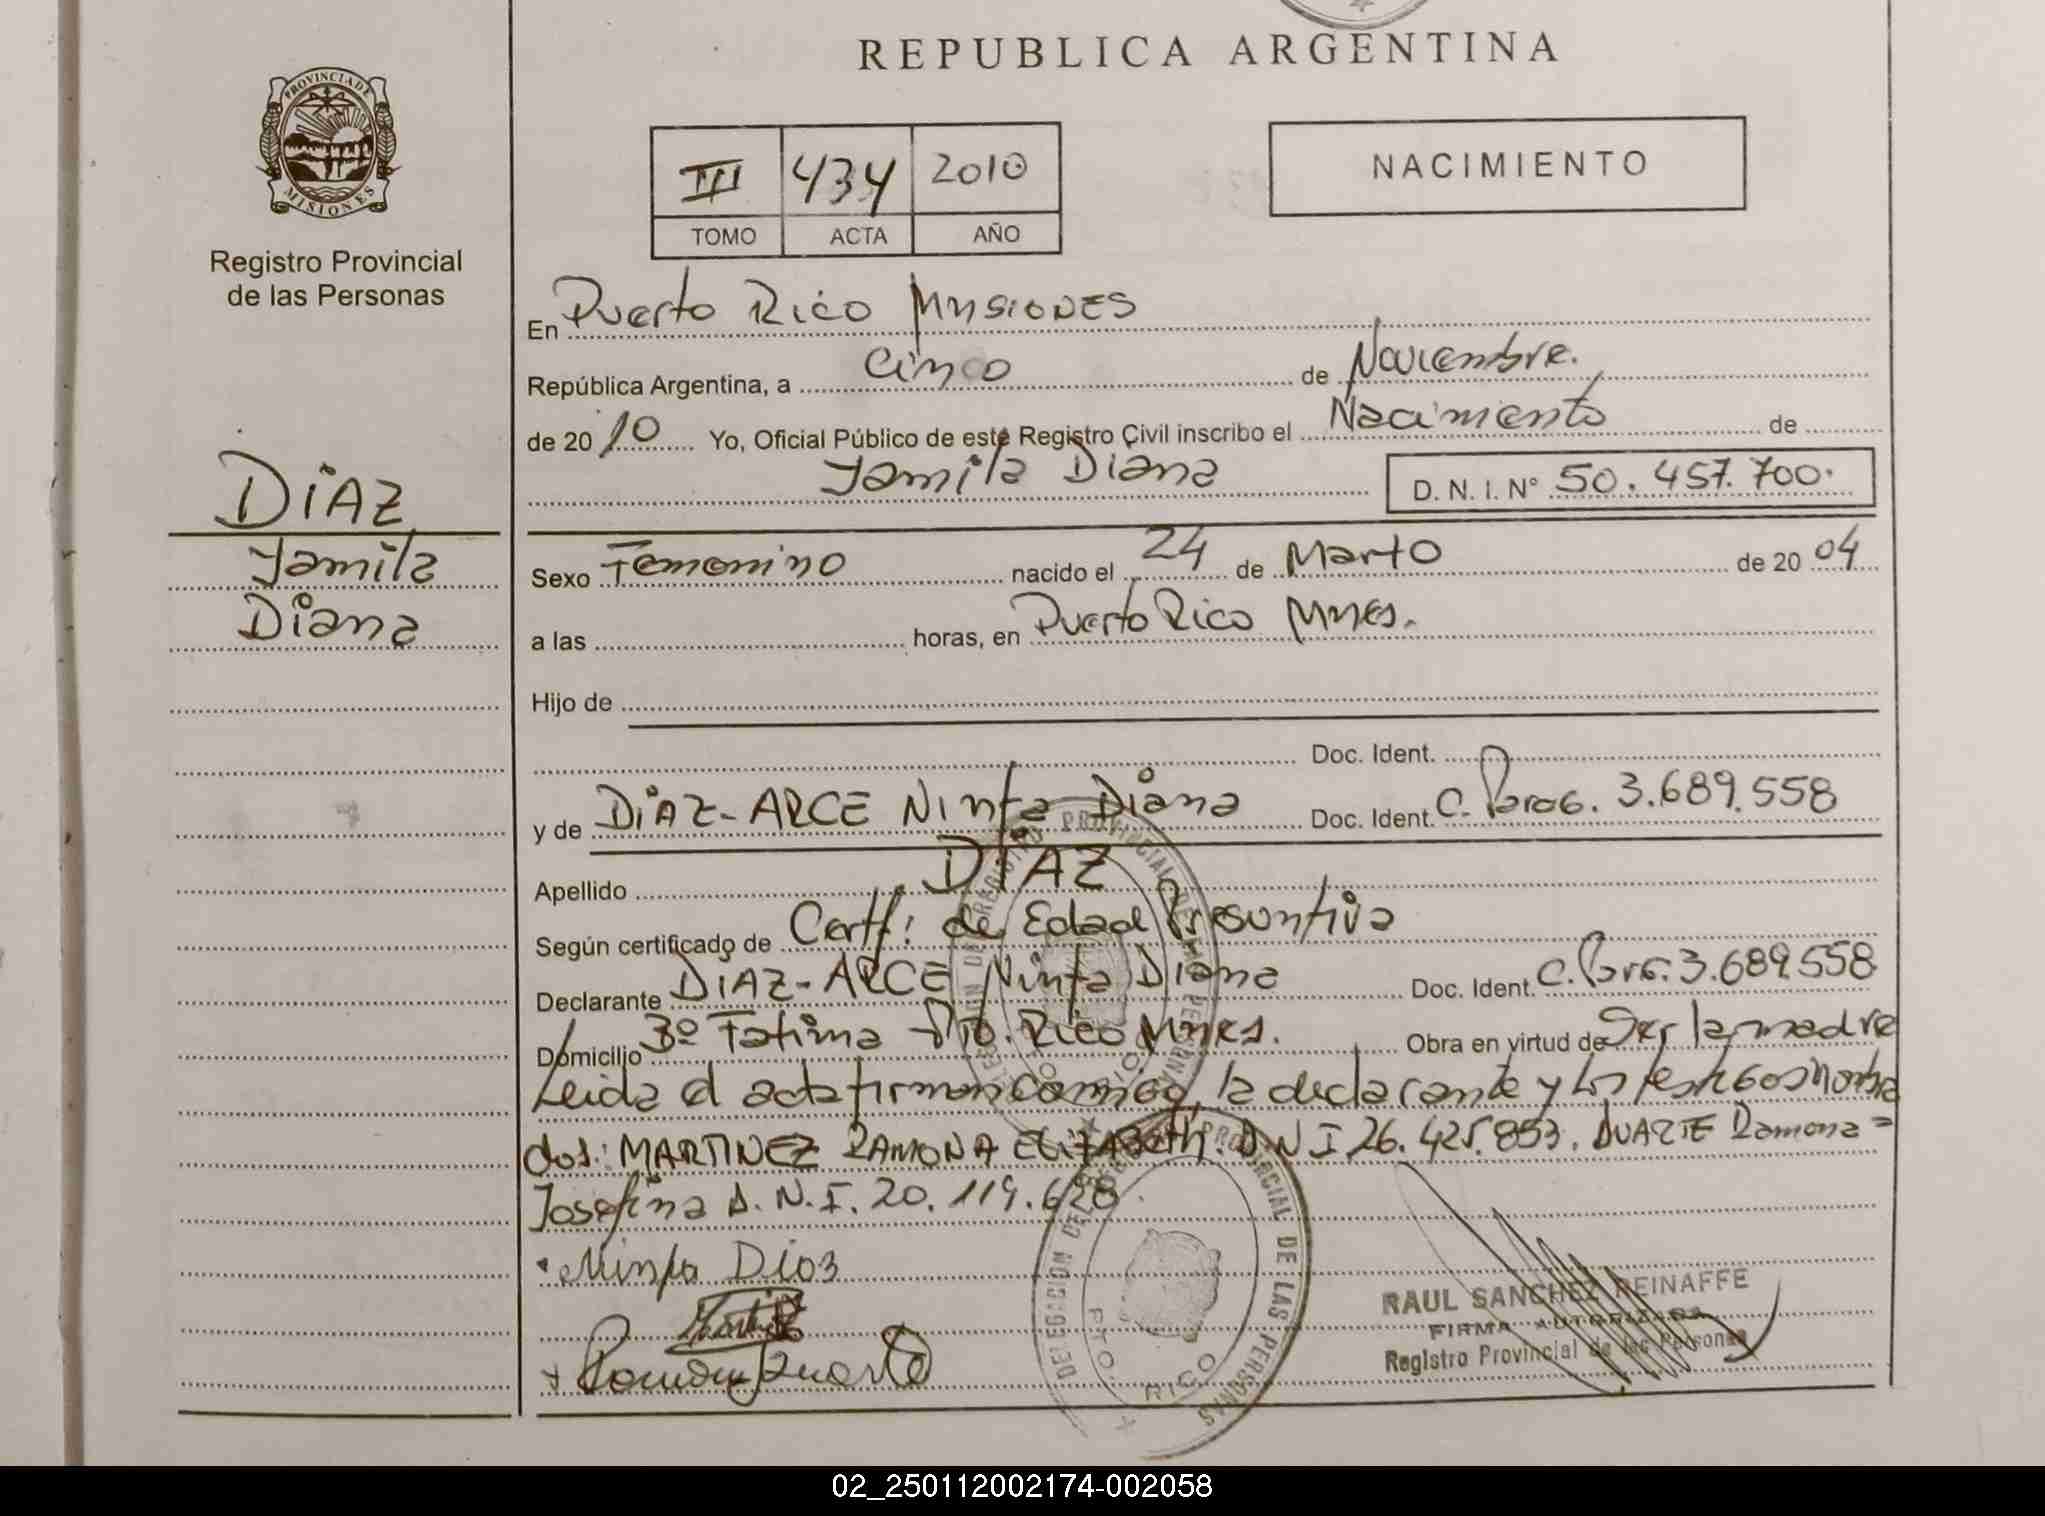 REPUBLICA ARGENTINA
PROVINCIA DE MISIONES
Registro Provincial
de las Personas
III 434 2010
TOMO ACTA AÑO
NACIMIENTO
En Puerto Rico Misiones
República Argentina, a Cinco de Noviembre.
de 20 10 Yo, Oficial Público de este Registro Civil inscribo el Nacimiento de
Yamila Diana D. N. I. N° 50.457.700.
DiAZ
Yamila
Diana
Sexo Femenino nacido el 24 de Marzo de 20 04
a las horas, en Puerto Rico Mnes.
Hijo de
Doc. Ident.
y de DiAZ-ARCE Ninfa Diana Doc. Ident. C. Parag. 3.689.558
Apellido DiAZ
Según certificado de Certf: de Edad Presuntiva
Declarante DiAZ-ARCE Ninfa Diana Doc. Ident. C. Parg. 3.689.558
Domicilio Bº Fatima Pto. Rico Mnes. Obra en virtud de Ser la madre
Leida el acta firman conmigo, la declarante y los testigos nombra
dos: MARTINEZ RAMONA ELIZABeth. D N I 26.425.853. DUARTE Ramona =
Josefina D. N. I. 20.119.628.
Ninfa Diaz
Ramona Duarte
DELEGACION DEL REGISTRO PROVINCIAL DE LAS PERSONAS
PTO. RICO
DELEGACION DEL REGISTRO PROVINCIAL DE LAS PERSONAS
PTO. RICO
RAUL SANCHEZ REINAFFE
FIRMA AUTORIZADA
Registro Provincial de las Personas
02_250112002174-002058